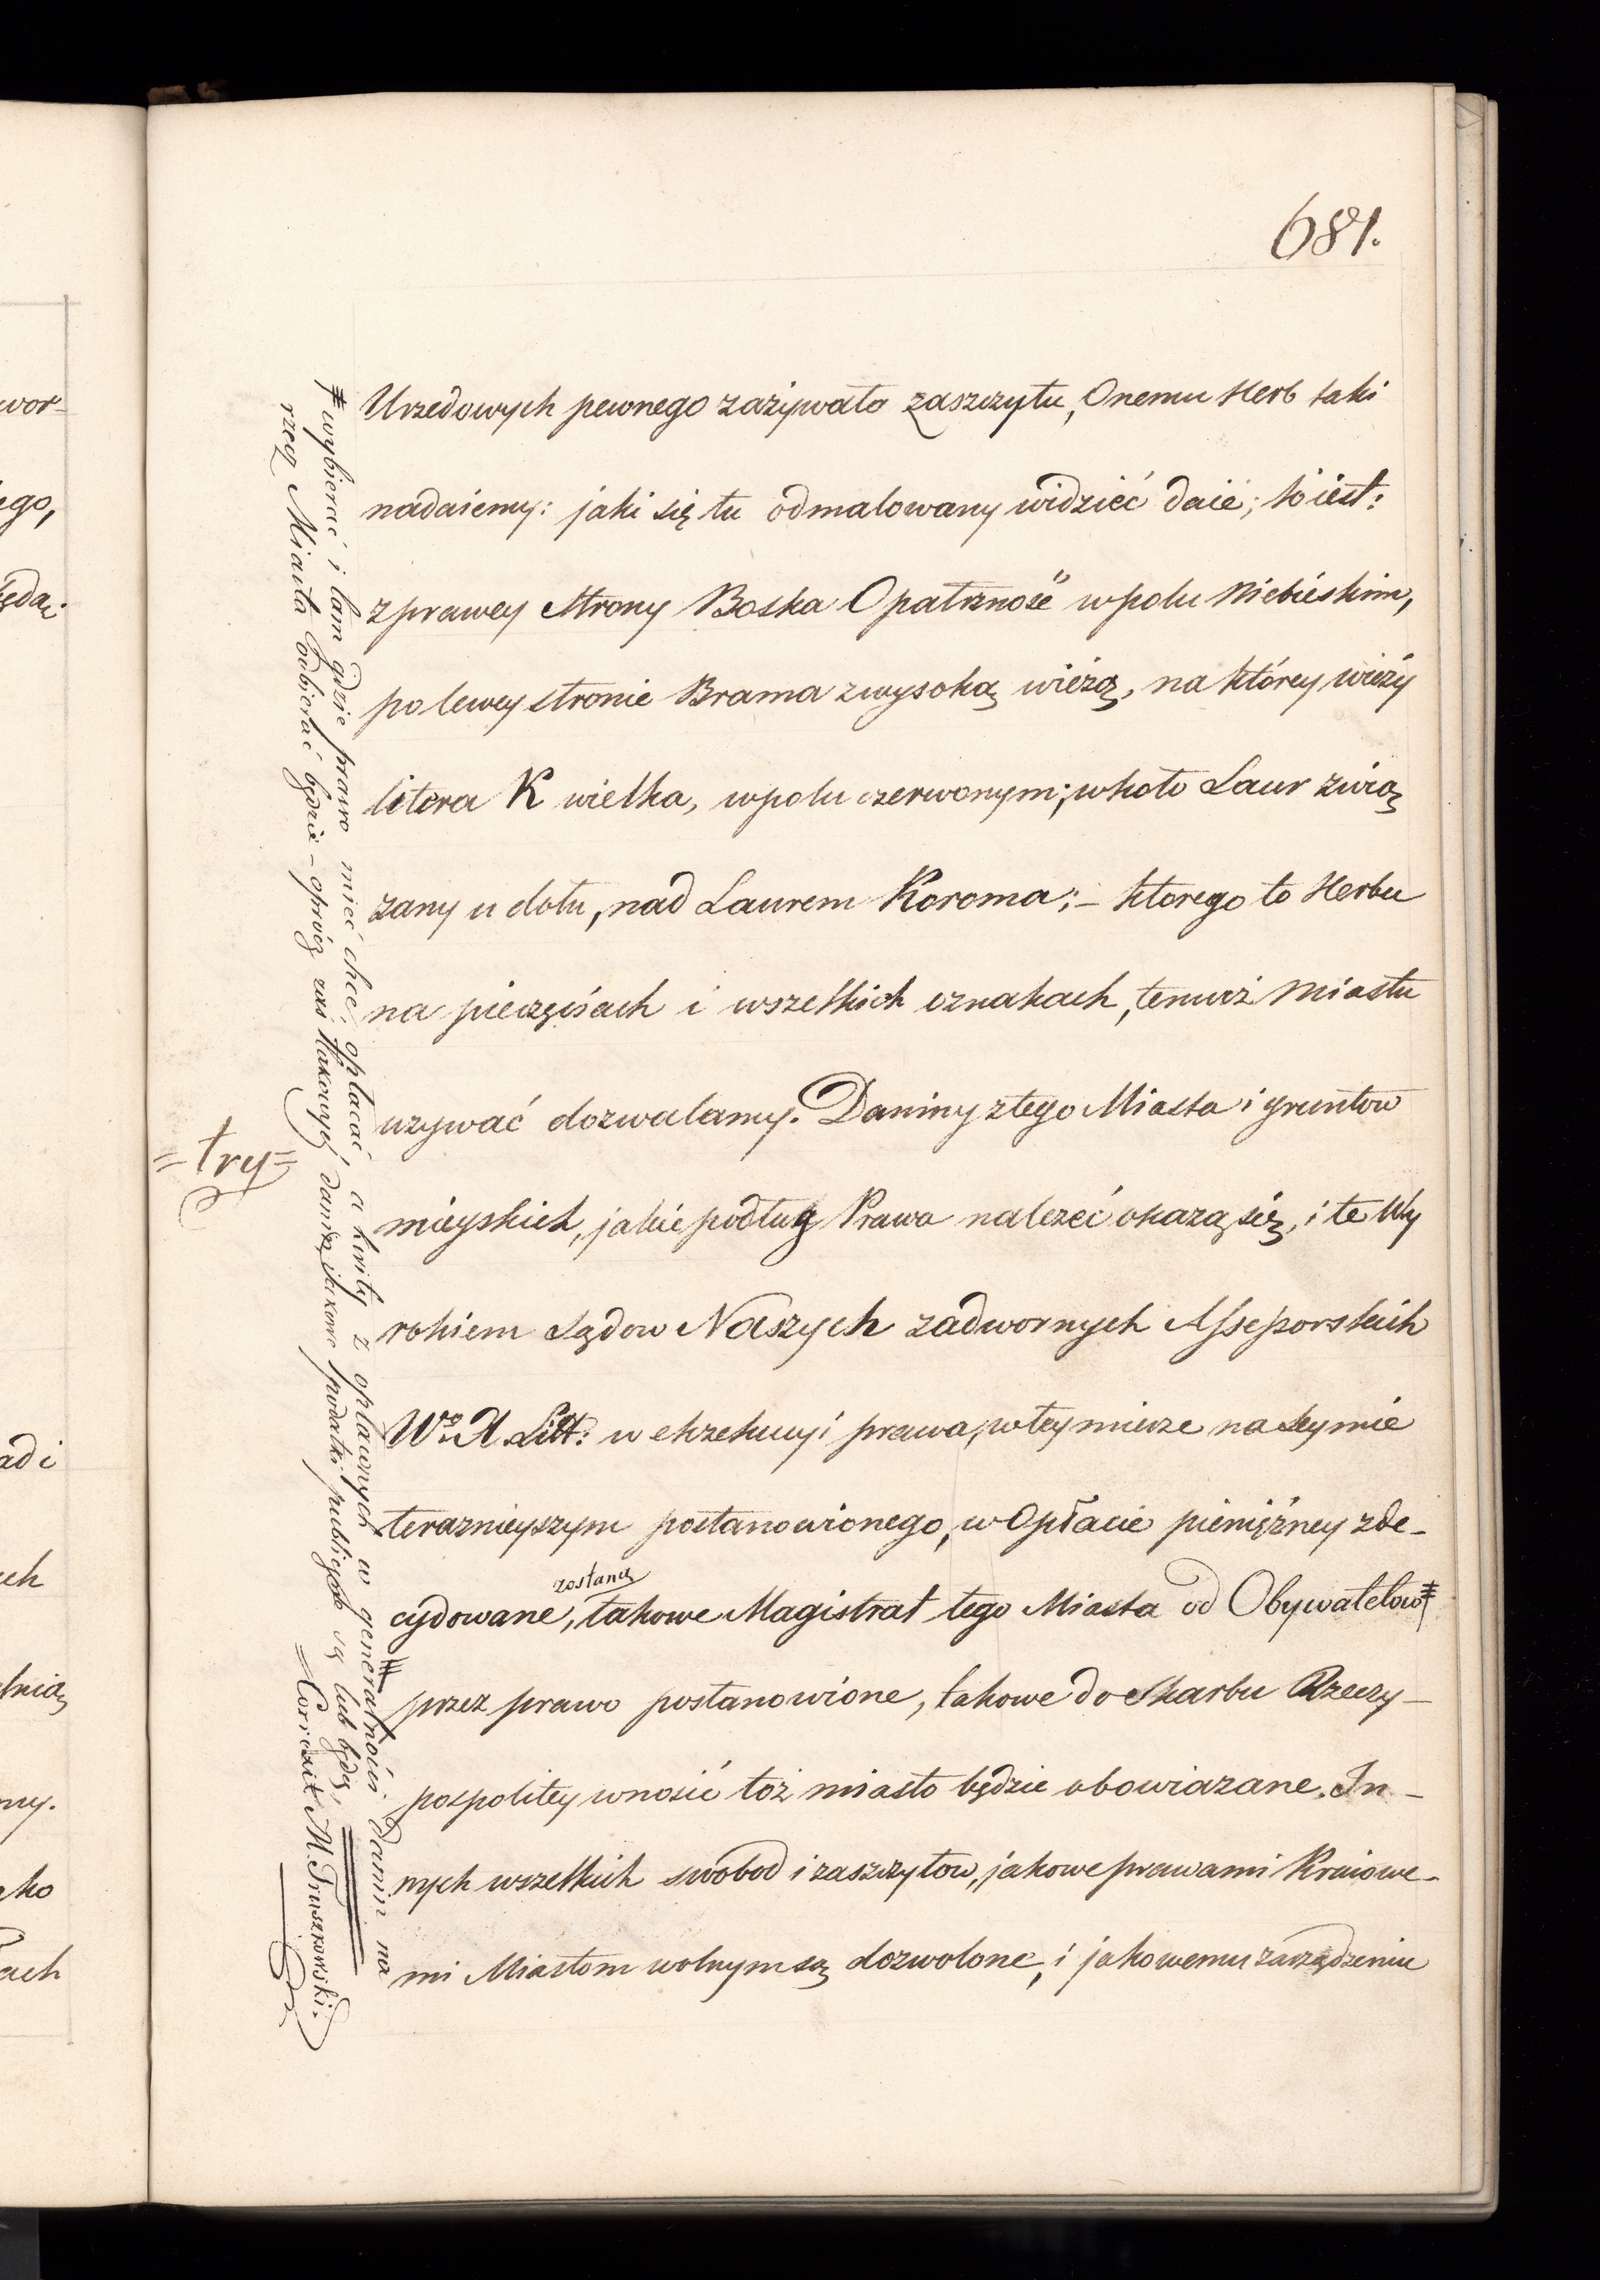 681.
Urzedowych pewnego zażywało zaszczytu, Onemu Herb taki
nadaiemy: jaki się tu odmalowany widzieć daie; to iest:
z prawey strony Boska Opatrzność w polu Niebieskim,
po lewey stronie Brama z wysoką wieżą, na którey wieży
litera K wielka, w polu czerwonym; w koło Laur zwią
zany u dołu, nad Laurem Korona; – ktorego to Herbu
na pieczęciach i wszelkich oznakach, temuż Miastu
uzywać dozwalamy. Daniny z tego Miasta i gruntow
mieyskich, jakie podług Prawa nalezeć okazą się, i te Wy
rokiem Sądow Naszych zadwornych Assessorskich
W. X. Litt: w ekzekucyi prawa, w tey mierze na Seymie
teraznieyszym postanowionego, w Opłacie pieniężney zde-
zostaną
cydowane, takowe Magistrat tego Miasta od Obywatelow #
przez prawo postanowione, takowe do Skarbu Rzeczy-
pospolitey wnosić toż miasto będzie obowiazane. In-
nych wszelkich swobod i zaszczytow, jakowe prawami Kraiowe-
mi Miastom wolnym są dozwolone, i jakowemu zarządzeniu
# wybierać i tam gdzie prawo mieć chce, opłacać, a kwity z opłaconych w generalności danin na
rzecz Miasta odbierać będzie – oprócz zaś takowych danin, jakowe podatki publiczne są lub będą
= Correxit M. Truszkowski.
= try =
wor-
ego,
ędą.
ad i
ch
lnią
my.
ako
ach